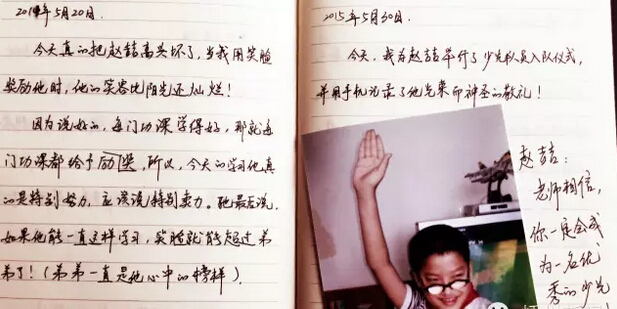 2014年5月20日.
今天真的把赵喆高兴坏了，当我用笑脸
奖励他时，他的笑容比阳光还灿烂！
因为说好的，每门功课学得好，那就每
门功课都给予励奖，所以，今天的学习他真
的是特别努力，应该说特别卖力。他最后说，
如果他能一直这样学习，笑脸就能超过弟
弟了！（弟弟一直是他心中的榜样）.
2015年5月30日.
今天，我为赵喆举行了少先队员入队仪式，
并用手机记录了他光荣而神圣的敬礼！
赵喆：
老师相信，
你一定会成
为一名优
秀的少先